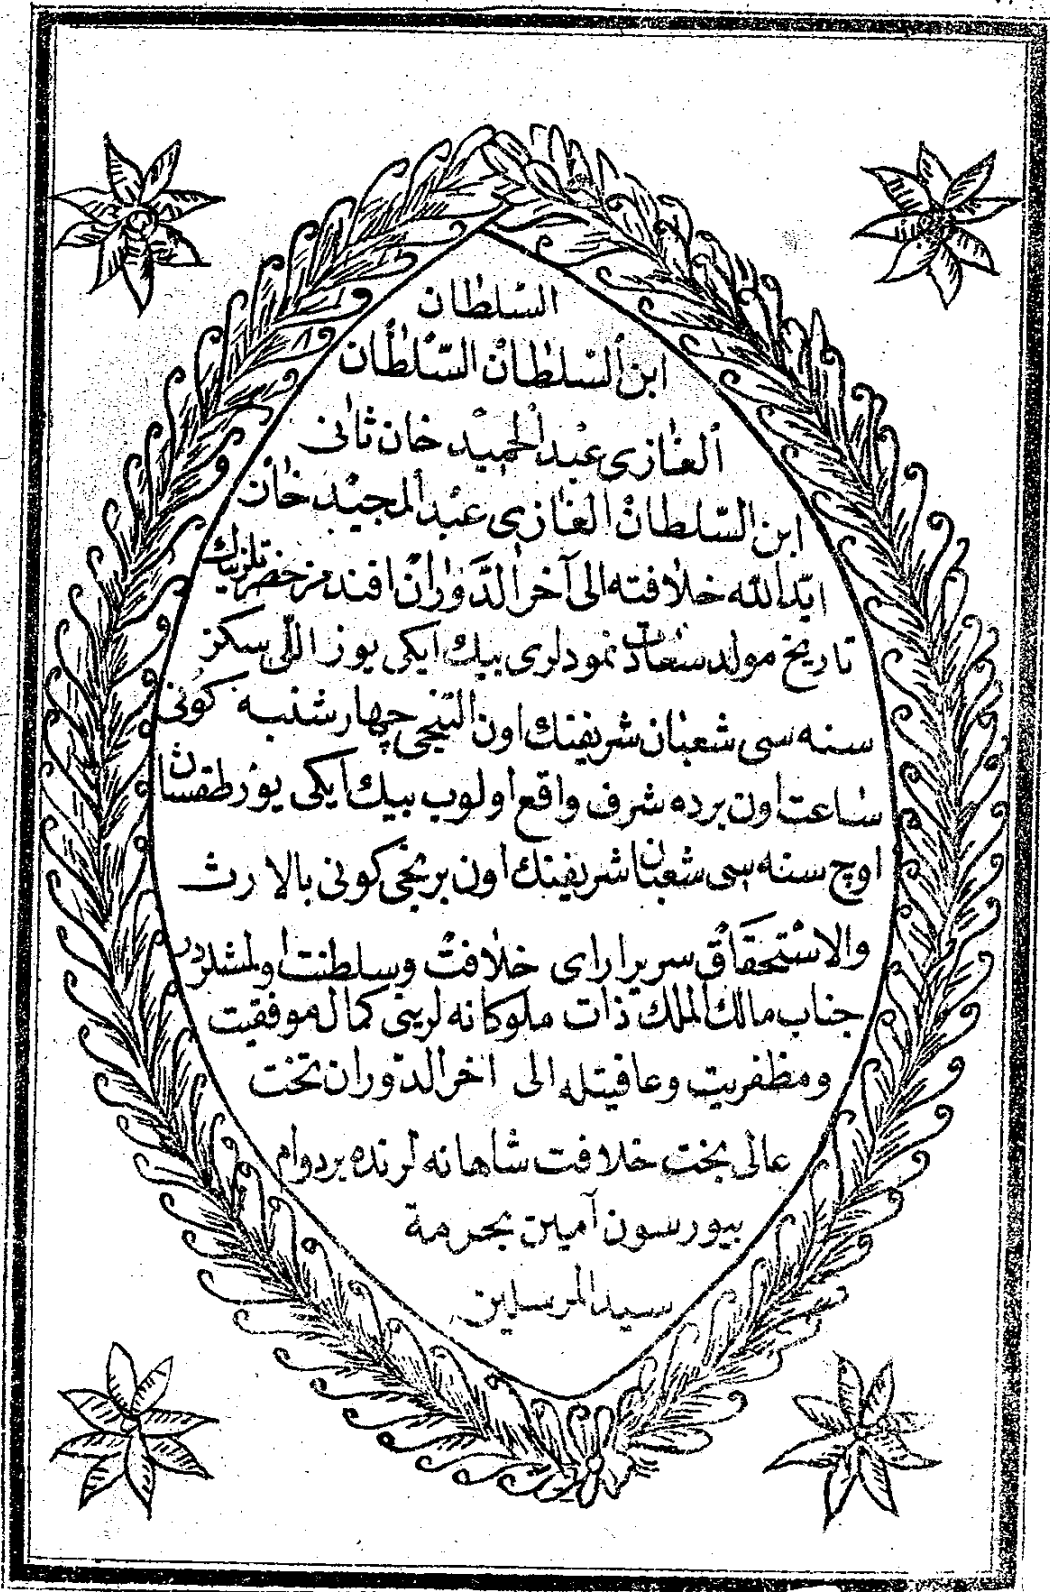 السّلطان
ابن السّلطان السّلطان
الغازى عبد الحميد خان ثانى
ابن السّلطان الغازى عبد المجيد خان
ايّد الله خلافته الى آخر الدّوران افندمز حضرتلرينك
تاريخ مولد سعادت نمودلرى بيك ايكى يوز اللى سكز
سنه سى شعبان شريفنك اون التنجى چهارشنبه كونى
ساعت اون برده شرف واقع اولوب بيك ايكى يوز طقسان
اوچ سنه سى شعبان شريفنك اون برنجى كونى بالارث
والاستحقاق سريراراى خلافت وسلطنت اولمشلردر
جناب مالك الملك ذات ملوكانه لرينى كمال موفقيت
ومظفريت وعافيتله الى اخر الدّوران تخت
عالى بخت خلافت شاهانه لرنده بردوام
بيورسون آمين بحرمة
سيد المرسلين